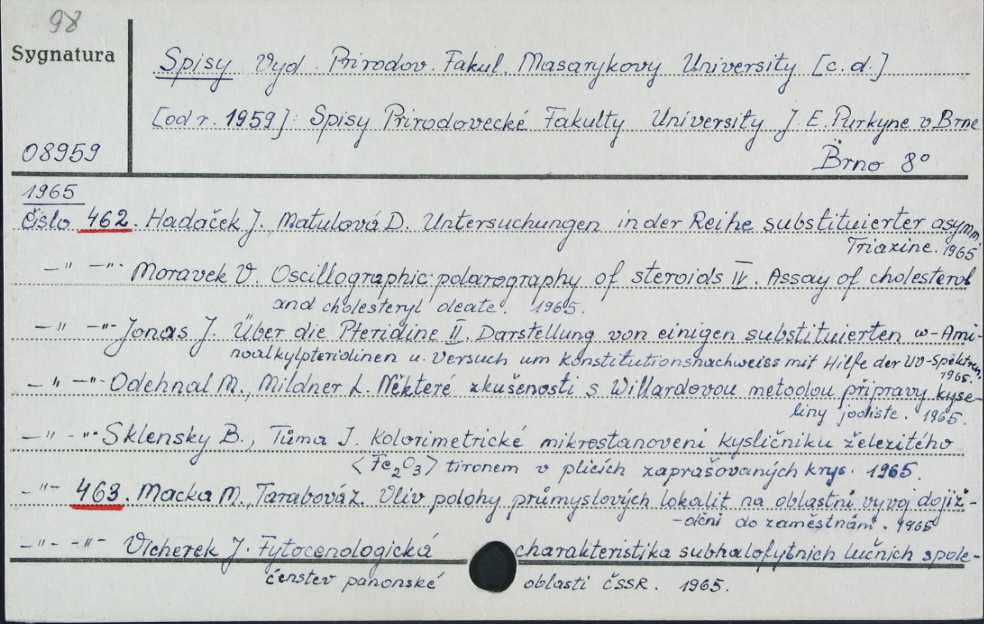 98
Sygnatura
Spisy Vyd. Prirodov. Fakul. Masarykovy University [c.d.]
[od r. 1959]: Spisy Prirodovecké Fakulty University J. E. Purkyne v Brne
08959
Brno 8°
1965
čislo 462. Hadaček J. Matulová D. Untersuchungen in der Reihe substituierter asymm.
Triazine. 1965
—"— —"— Moravek V. Oscillographic polarography of steroids IV. Assay of cholesterol
and cholesteryl oleate. 1965.
—"— —"— Jonas J. Über die Pteridine II. Darstellung von einigen substituierten w-Ami-
noalkylpteridinen u. Versuch um Konstitutionsnachweiss mit Hilfe der UV-Spektren.
1965.
—"— —"— Odehnal M., Mildner L. Některé zkušenosti s Willardovou metodou připravy kyse-
liny jodiste. 1965.
—"— —"— Sklensky B., Tůma J. Kolorimetrické mikrostanoveni kysličniku železitého
<Fe2O3> tironem v plicích zaprašovaných krys. 1965.
—"— 463. Macka M., Tarabová Z. Vliv polohy průmyslových lokalit na oblastní vyvoj dojiž-
-dění do zaměstnám. 1965
—"— —"— Vicherek J. Fytocenologická charakteristika subhalofytních lučních spole-
čenstev panonské oblasti ČSSR. 1965.